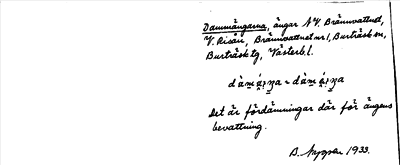 Dammängarna, ängar N V. Brännvattnet,
V. Risån, Brännvattnet nr 1, Burträsk sn,
Burträsk tg, Västerb. l.
Det är fördämningar där för ängens
bevattning.
B. 1933.